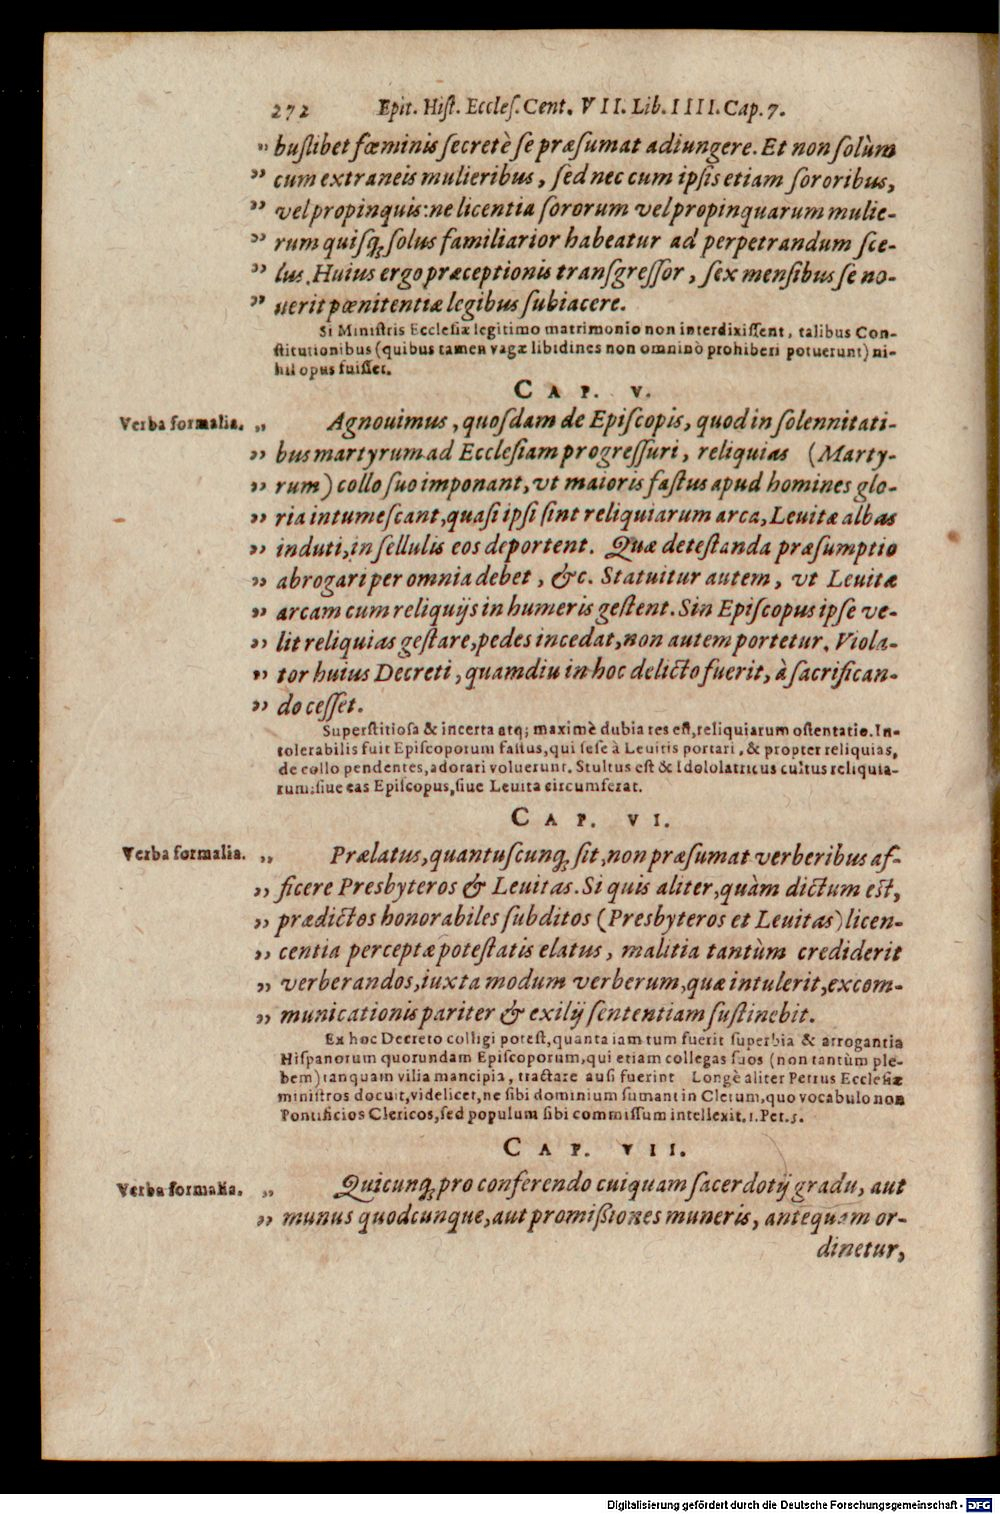 272 Epit. Hist. Eccles. Cent. VII. Lib. IIII. Cap. 7.
„ buslibet fœminis secretè se præsumat adiungere. Et non solùm
„ cum extraneis mulieribus, sed nec cum ipsis etiam sororibus,
„ vel propinquis: ne licentia sororum vel propinquarum mulie-
„ rum quisq; solus familiarior habeatur ad perpetrandum sce-
„ lus. Huius ergo præceptionis transgressor, sex mensibus se no-
„ uerit pœnitentiæ legibus subiacere.
Si Ministris Ecclesiæ legitimo matrimonio non interdixissent, talibus Con-
stitutionibus (quibus tamen vagæ libidines non omninò prohiberi potuerunt) ni-
hil opus fuisset.
CAP. V.
Verba formalia. „ Agnouimus, quosdam de Episcopis, quod in solennitati-
„ bus martyrum ad Ecclesiam progressuri, reliquias (Marty-
„ rum) collo suo imponant, vt maioris fastus apud homines glo-
„ ria intumescant, quasi ipsi sint reliquiarum arca, Leuitæ albas
„ induti, in sellulis eos deportent. Quæ detestanda præsumptio
„ abrogari per omnia debet, &c. Statuitur autem, vt Leuitæ
„ arcam cum reliquijs in humeris gestent. Sin Episcopus ipse ve-
„ lit reliquias gestare, pedes incedat, non autem portetur. Viola-
„ tor huius Decreti, quamdiu in hoc delicto fuerit, à sacrifican-
„ do cesset.
Superstitiosa & incerta atq; maximè dubia res est, reliquiarum ostentatio. In-
tolerabilis fuit Episcoporum fastus, qui sese à Leuitis portari, & propter reliquias,
de collo pendentes, adorari voluerunt. Stultus est & Idololatricus cultus reliquia-
rum: siue eas Episcopus, siue Leuita circumferat.
CAP. VI.
Verba formalia. „ Prælatus, quantuscunq; sit, non præsumat verberibus af-
„ ficere Presbyteros & Leuitas. Si quis aliter, quàm dictum est,
„ prædictos honorabiles subditos (Presbyteros et Leuitas) licen-
„ centia perceptæ potestatis elatus, malitia tantùm crediderit
„ verberandos, iuxta modum verberum, quæ intulerit, excom-
„ municationis pariter & exilij sententiam sustinebit.
Ex hoc Decreto colligi potest, quanta iam tum fuerit superbia & arrogantia
Hispanorum quorundam Episcoporum, qui etiam collegas suos (non tantùm ple-
bem) tanquam vilia mancipia, tractare ausi fuerint Longè aliter Petrus Ecclesiæ
ministros docuit, videlicet, ne sibi dominium sumant in Clerum, quo vocabulo non
Pontificios Clericos, sed populum sibi commissum intellexit. 1. Pet. 5.
CAP. VII.
Verba formalia. „ Quicunq; pro conferendo cuiquam sacerdotij gradu, aut
„ munus quodcunque, aut promißiones muneris, antequam or-
dinetur,
Digitalisierung gefördert durch die Deutsche Forschungsgemeinschaft - DFG